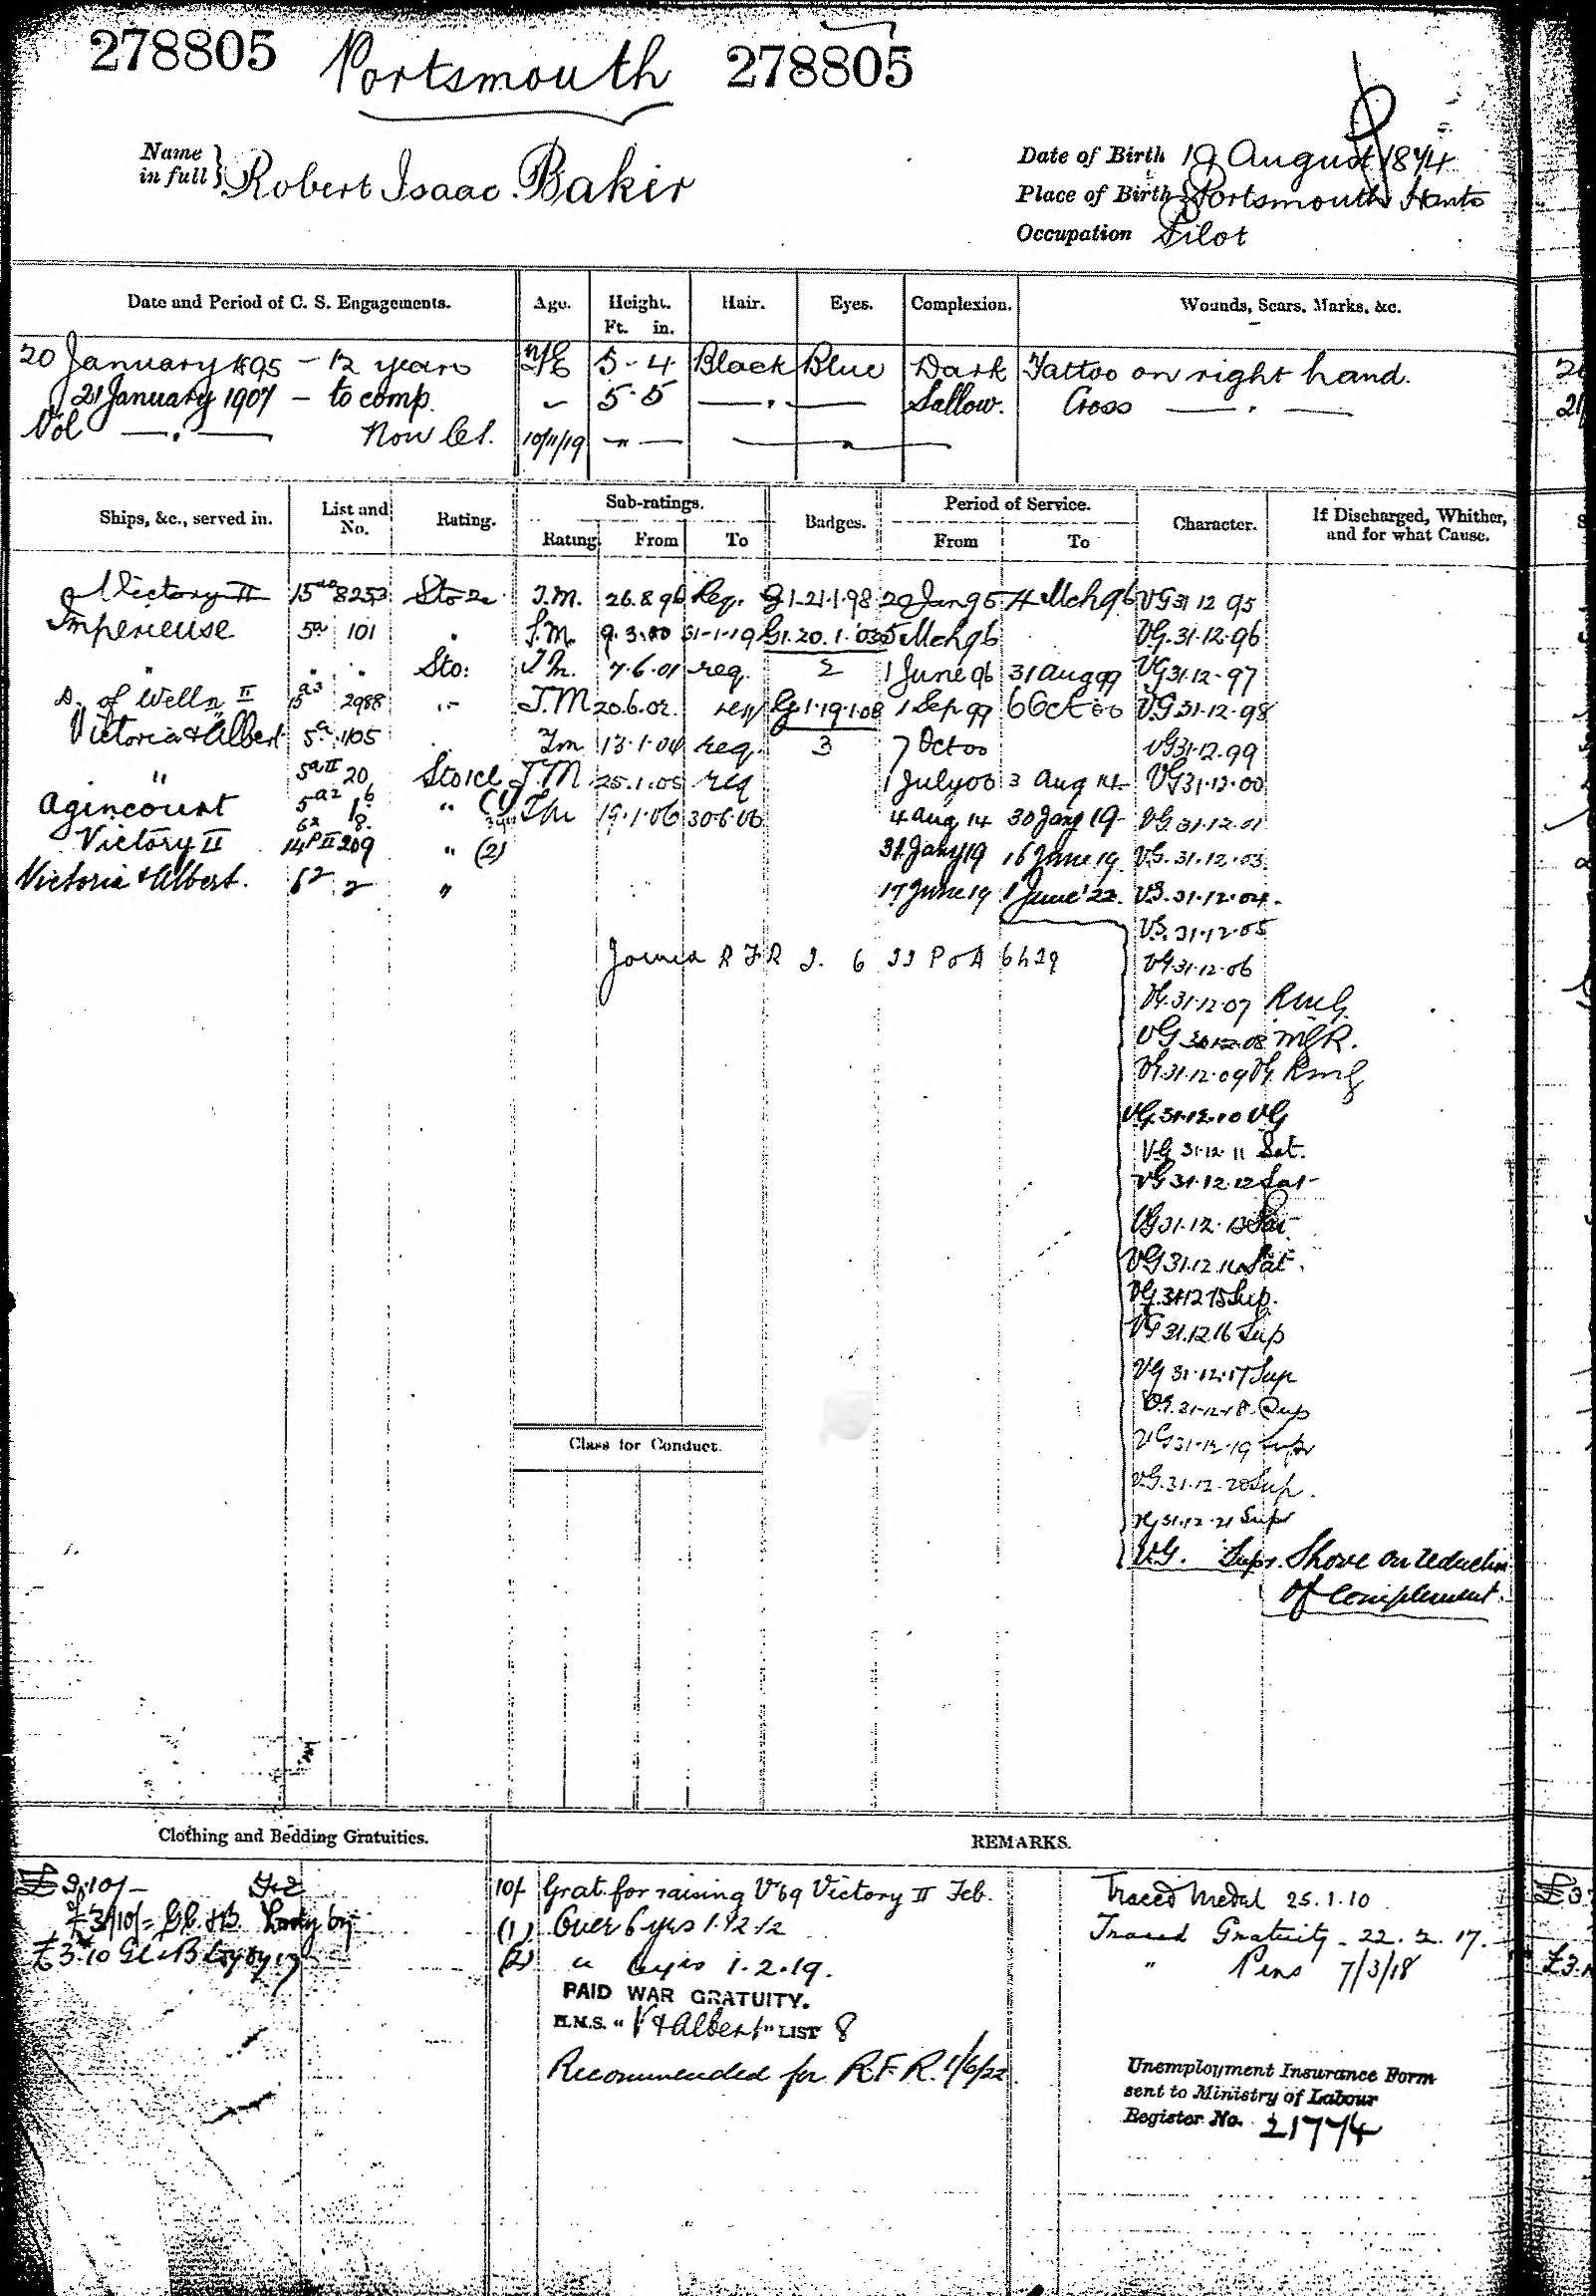 278805 Portsmouth 278805
Name in full } Robert Isaac Baker
Date of Birth 19 August 1874
Place of Birth Portsmouth Hants
Occupation Pilot
Date and Period of C. S. Engagements. Age. Height. Ft. in. Hair. Eyes. Complexion. Wounds, Scars, Marks, &c.
20 January 1895 - 12 years 5-4 Black Blue Dark Tattoo on right hand.
21 January 1907 - to comp. 5-5 Sallow. Cross
Vol Now Cl. 10/11/19
Ships, &c., served in. List and No. Rating. Sub-ratings. Badges. Period of Service. Character. If Discharged, Whither, and for what Cause.
Rating. From To From To
Victory II 8253 Sto 2c T.M. 26.8.96 Req. G1-21-1-98 20 Jan 95 4 Mch 96 VG 31 12 95
Imperieuse 5a 101 " T.M. 9.3.00 31-1-19 G1.20.1.03 5 Mch 96 VG.31-12-96
" " " Sto: T.M. 7.6.01 req. 2 1 June 96 31 Aug 99 VG 31-12-97
D. of Welln II 2988 " T.M 20.6.02. req G1.19.1.08 1 Sep 99 6 Oct 00 VG 31-12-98
Victoria & Albert 5a 1105 " T.M 13.1.04 req. 3 7 Oct 00 VG 31.12.99
" 5a II 20 Sto 1Cl T.M 25.1.05 req 1 July 06 3 Aug 14 VG 31.12.00
Agincourt " T.M 19.1.06 30.6.06 4 Aug 14 30 Jany 19 VG 31-12-01
Victory II 209 " (2) 31 Jany 19 16 June 19 VG. 31.12.03
Victoria & Albert. 2 " 17 June 19 1 June '22. VG. 31.12.04.
VG. 31.12.05
Joined R F R 2. 6 22 Po A 6429 VG 31.12.06
VG. 31.12.07 RMG.
VG 31.12.08 MGR.
VG 31.12.09 VG. RMG
VG 31.12.10 VG
VG 31.12.11 Sat.
VG 31.12.12 Sat
VG 31.12.13 Sat
VG 31.12.14 Sat.
VG. 31.12.15 Sup.
VG 31.12.16 Sup
VG 31.12.17 Sup
VG. 31-12-18. Sup
VG 31-12-19 Supr
VG. 31.12.20 Sup.
VG 31.12.21 Supr
VG. Supr. Shore on reduction
of complement.
Class for Conduct.
Clothing and Bedding Gratuities. REMARKS.
£2.10/-
£3/10/-
£3.10
10/- Grat. for raising V69 Victory II Feb.
(1) Over 6 yrs 1.12.12
(2) " 1.2.19.
PAID WAR GRATUITY.
H.M.S. "V & Albert" LIST 8
Recommended for R.F.R. 1/6/22.
Traced Medal 25.1.10
Traced Gratuity. 22.2.17.
" Pens 7/3/18
Unemployment Insurance Form
sent to Ministry of Labour
Register No. 21774